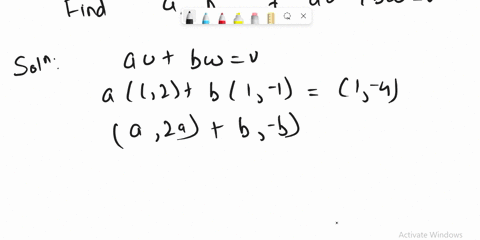 Find a
Solⁿ: au + bw = v
a (1,2) + b (1,-1) = (1,-4)
(a, 2a) + b, -b)
Activate Windows